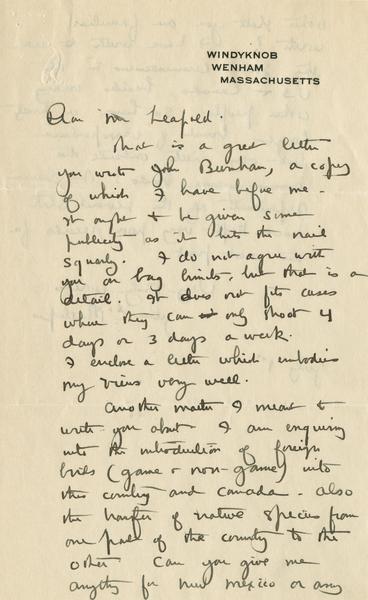 WINDYKNOB
WENHAM
MASSACHUSETTS
Dear Mr Leopold.
That is a great letter
you wrote John Burnham, a copy
of which I have before me -
It ought to be given some
publicity as it hits the nail
squarely. I do not agree with
you on bag limits, but that is a
detail. It does not fit cases
where they can only shoot 4
days or 3 days a week.
I enclose a letter which embodies
my views very well.
Another matter I meant to
write you about I am enquiring
into the introduction of foreign
birds (game & non-game) into
this country and Canada - also
the transfer of native species from
one part of the country to the
other Can you give me
anything for New Mexico or any